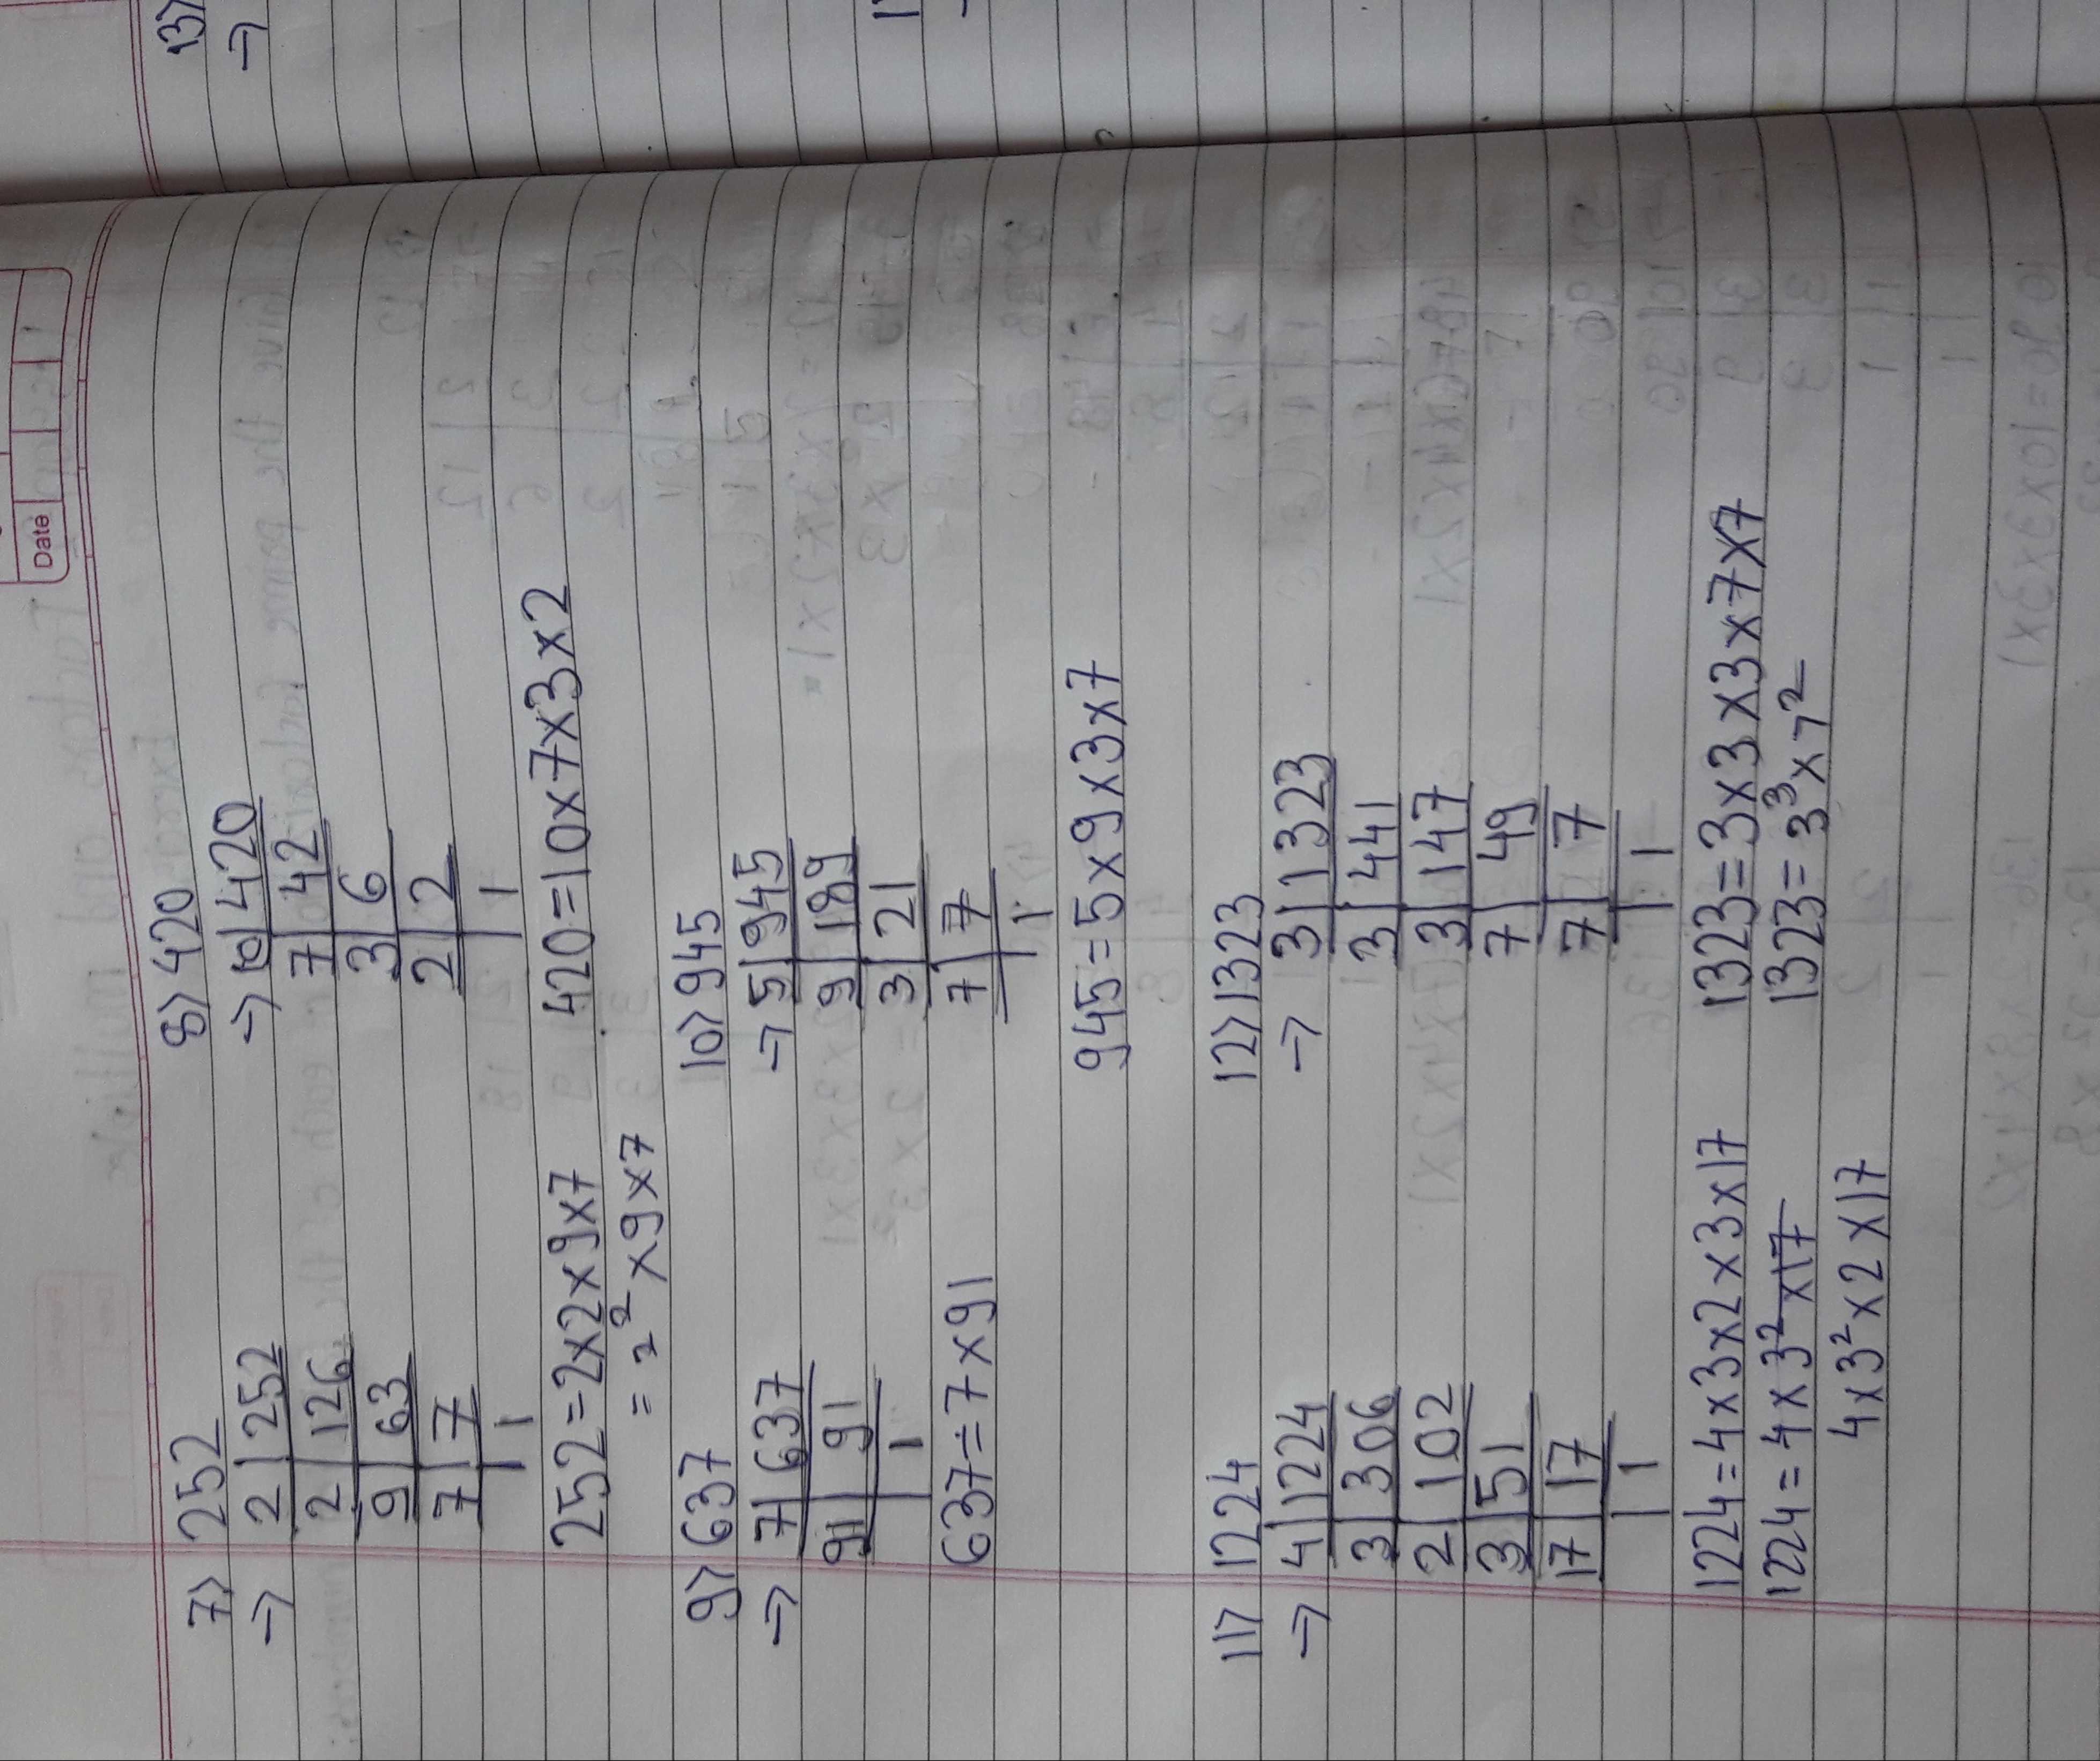 Date
7) 252
→ 2 | 252
2 | 126
9 | 63
7 | 7
1
252 = 2x2x9x7
= 2² x9x7
8) 420
→ 10 | 420
7 | 42
3 | 6
2 | 2
1
420 = 10x7x3x2
9) 637
→ 7 | 637
91 | 91
1
637 = 7x91
10) 945
→ 5 | 945
9 | 189
3 | 21
7 | 7
1
945 = 5x9x3x7
11) 1224
→ 4 | 1224
3 | 306
2 | 102
3 | 51
17 | 17
1
1224 = 4x3x2x3x17
1224 = 4x3² x17
4x3² x2x17
12) 1323
→ 3 | 1323
3 | 441
3 | 147
7 | 49
7 | 7
1
1323 = 3x3x3x7x7
1323 = 3³ x 7²
13)
→